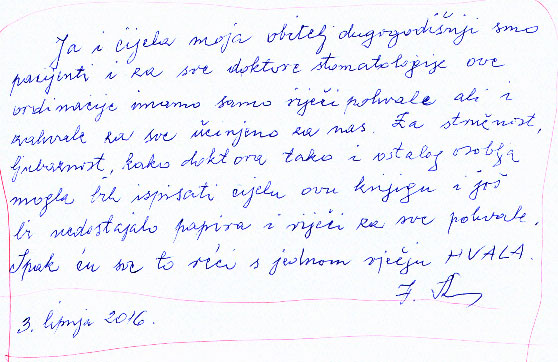 Ja i cijela moja obitelj dugogodišnji smo
pacijenti i za sve doktore stomatologije ove
ordinacije imamo samo riječi pohvale ali i
zahvale za sve učinjeno za nas. Za stručnost,
ljubaznost, kako doktora tako i ostalog osoblja
mogla bih ispisati cijelu ovu knjigu i još
bi nedostajalo papira i riječi za sve pohvale.
Ipak ću sve to reći s jednom riječju HVALA.
3. lipnja 2016.